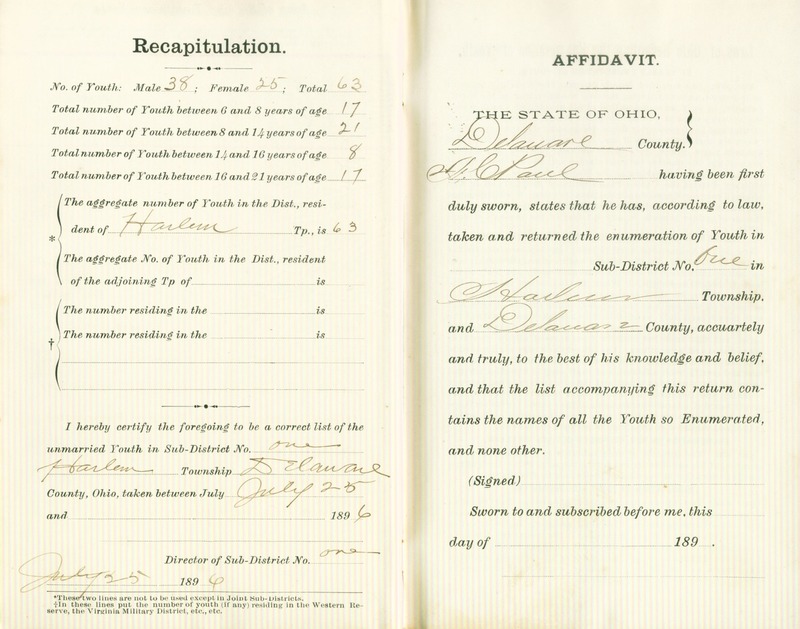 Recapitulation.
No. of Youth: Male 38; Female 25; Total 63
Total number of Youth between 6 and 8 years of age 17
Total number of Youth between 8 and 14 years of age 21
Total number of Youth between 14 and 16 years of age 8
Total number of Youth between 16 and 21 years of age 17
The aggregate number of Youth in the Dist., resi-
* dent of Harlem Tp., is 63
The aggregate No. of Youth in the Dist., resident
of the adjoining Tp of is
The number residing in the is
† The number residing in the is
I hereby certify the foregoing to be a correct list of the
unmarried Youth in Sub-District No. one
Harlem Township Delaware
County, Ohio, taken between July July 25
and 1896
Director of Sub-District No. one
July 25 1896
*These two lines are not to be used except in Joint Sub-Districts.
†In these lines put the number of youth (if any) residing in the Western Re-
serve, the Virginia Military District, etc., etc.
AFFIDAVIT.
THE STATE OF OHIO,
Delaware County.
Paul having been first
duly sworn, states that he has, according to law,
taken and returned the enumeration of Youth in
Sub-District No. One in
Harlem Township.
and Delaware County, accuartely
and truly, to the best of his knowledge and belief,
and that the list accompanying this return con-
tains the names of all the Youth so Enumerated,
and none other.
(Signed)
Sworn to and subscribed before me, this
day of 189 .